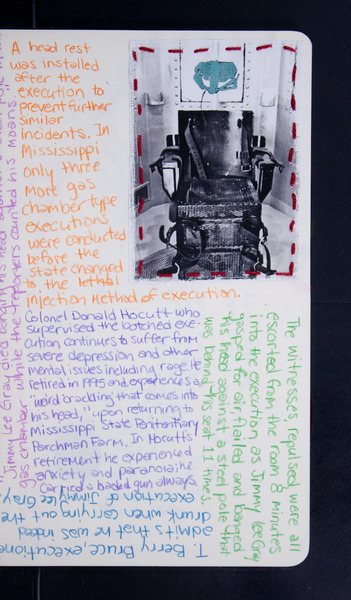 A head rest
was installed
after the
execution to
prevent further
similar
incidents. In
Mississippi
only three
more gas
chamber type
executions
were conducted
before the
state changed
to the lethal
injection method of execution.
Colonel Donald Hocutt who
supervised the botched exe-
cution continues to suffer from
severe depression and other
mental issues including rage. He
retired in 1995 and experiences a
"weird crackling that comes into
his head," upon returning to
Mississippi State Penitentiary
Parchman Farm. In Hocutts
retirement he experienced
anxiety and paranoia. he
carried a loaded gun always
The witnesses, repulsed were all
escorted from the room 8 minutes
into the execution as Jimmy Lee Gray
gasped for air, flailed, and banged
his head against a steel pole that
was behind his seat 11 times.
T. Berry Bruce, executione
admits that he was indeed
drunk when carrying out the
execution of Jimmy Lee Gray.
"Jimmy Lee Gray died banging his head against a steel pole in
gas chamber while the reporters counted his moans."